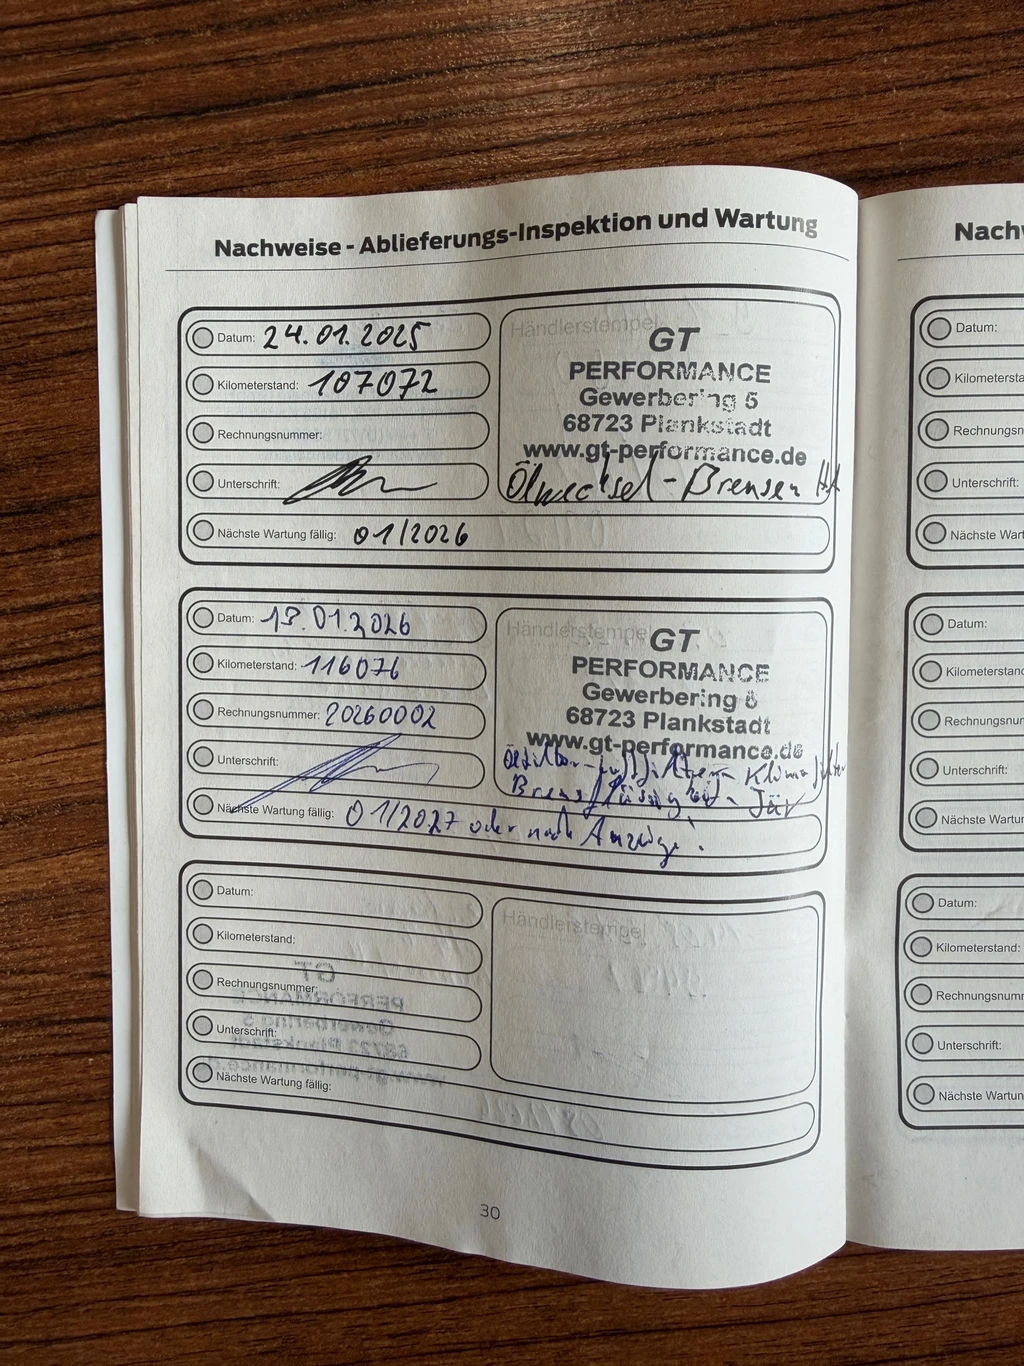 Nachweise - Ablieferungs-Inspektion und Wartung
Datum: 24.01.2025
Kilometerstand: 107072
Rechnungsnummer:
Unterschrift:
Nächste Wartung fällig: 01/2026
Händlerstempel
GT
PERFORMANCE
Gewerbering 5
68723 Plankstadt
www.gt-performance.de
Ölwechsel - Bremsen
Datum: 13.01.2026
Kilometerstand: 116076
Rechnungsnummer: 20260002
Unterschrift:
Nächste Wartung fällig: 01/2027 oder nach Anzeige.
Händlerstempel
GT
PERFORMANCE
Gewerbering 5
68723 Plankstadt
www.gt-performance.de
Ölfilter - Luftfilter - Klimafilter
Bremsflüssigkeit - Tüv
Datum:
Kilometerstand:
Rechnungsnummer:
Unterschrift:
Nächste Wartung fällig:
Händlerstempel
30
Nachw
Datum:
Kilometersta
Rechnungsn
Unterschrift:
Nächste War
Datum:
Kilometerstand
Rechnungsnur
Unterschrift:
Nächste Wartu
Datum:
Kilometerstand:
Rechnungsnumr
Unterschrift:
Nächste Wartun